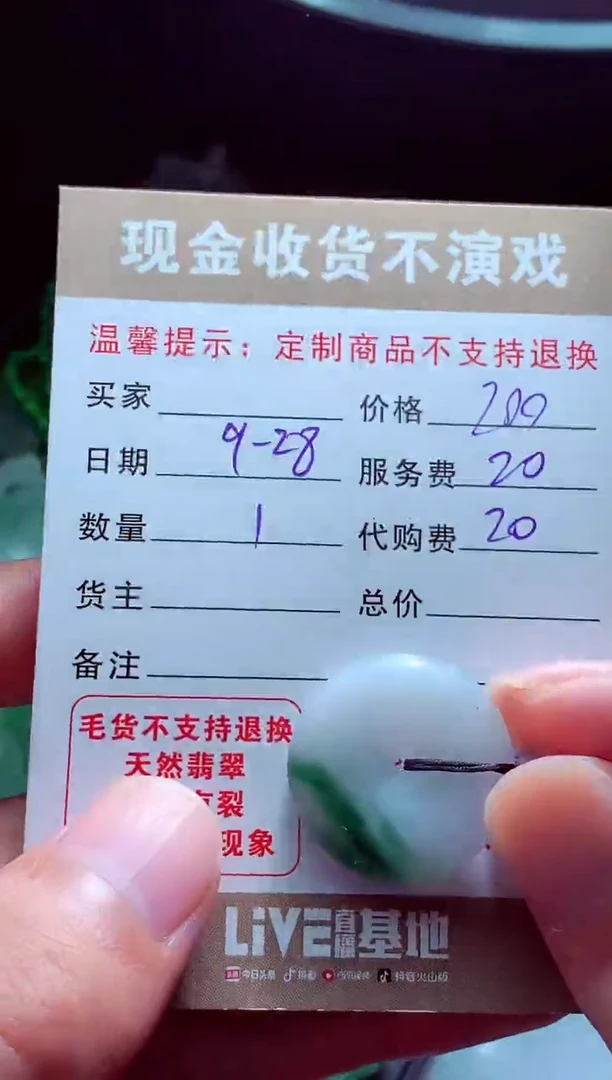 现金收货不演戏
温馨提示：定制商品不支持退换
买家 价格 200
日期 9-28 服务费 20
数量 1 代购费 20
货主 总价
备注
毛货不支持退换
天然翡翠
裂
现象
LiVE直播基地
今日头条 抖音火山版